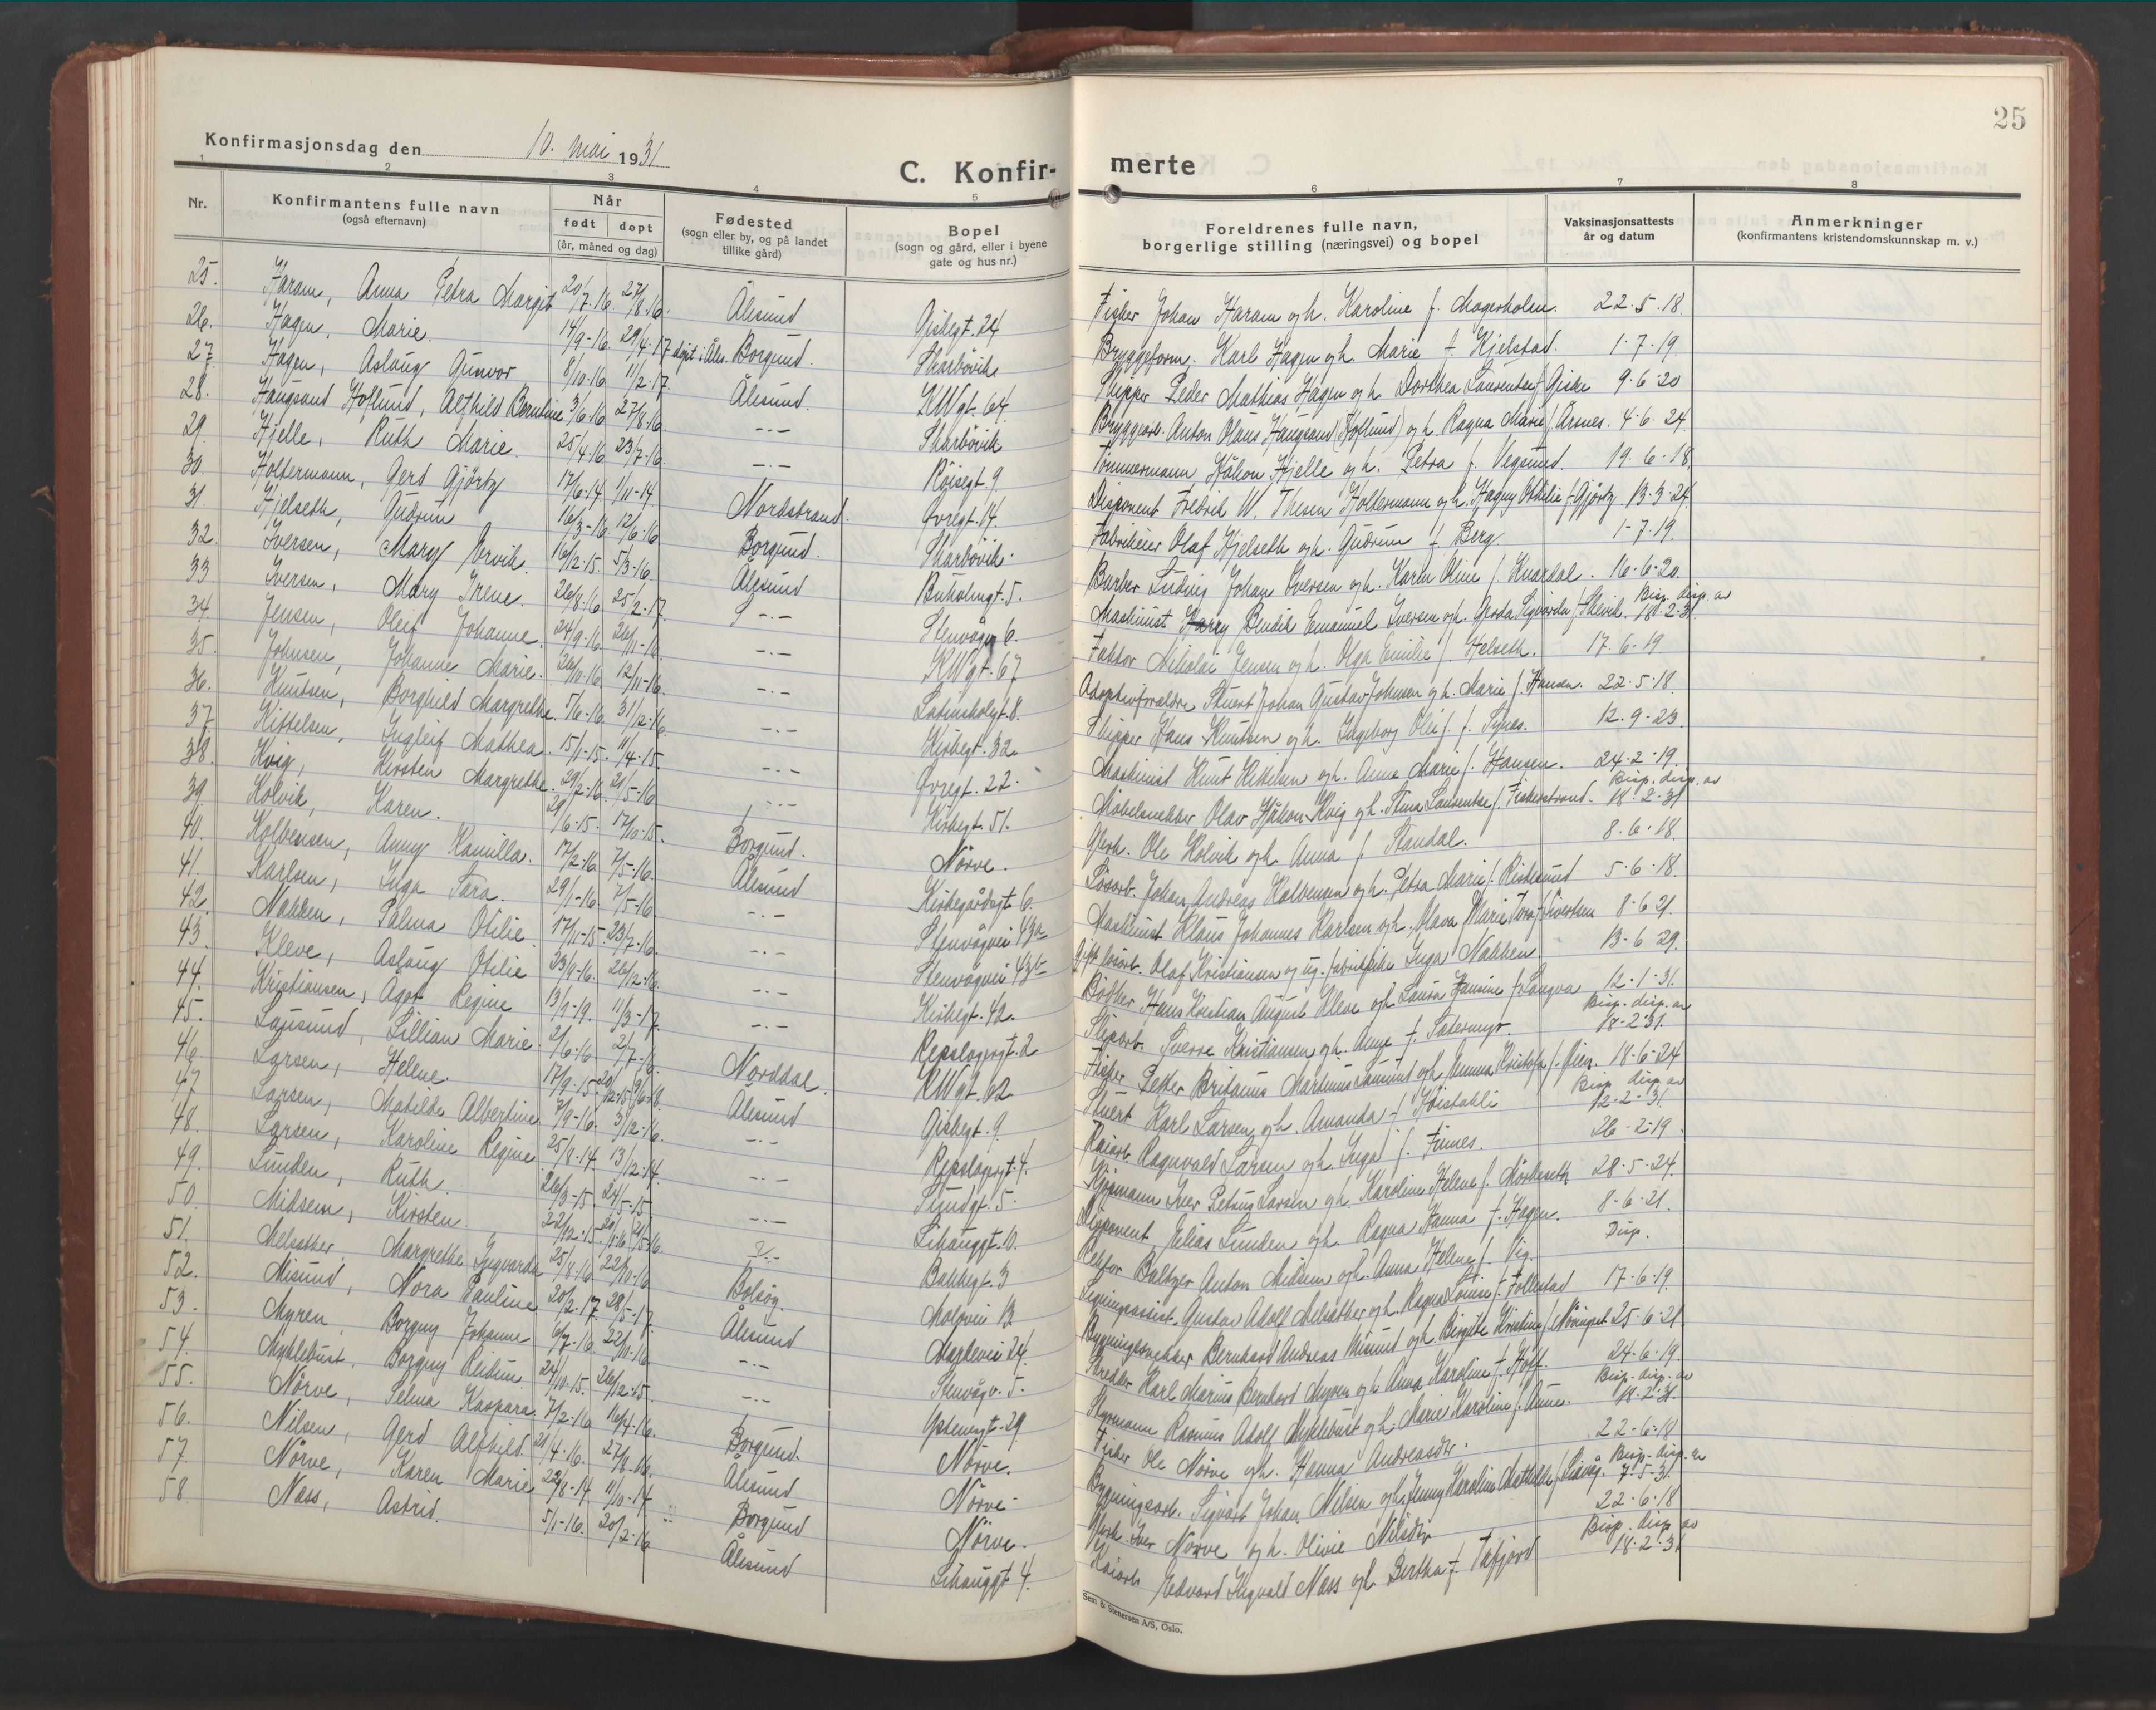 25
Konfirmasjonsdag den 10. mai 1931
C. Konfir-
merte
1 2 3 4 5 6 7 8
Nr.
Konfirmantens fulle navn
(også efternavn)
Når
født døpt
(år, måned og dag)
Fødested
(sogn eller by, og på landet
tillike gård)
Bopel
(sogn og gård, eller i byene
gate og hus nr.)
Foreldrenes fulle navn,
borgerlige stilling (næringsvei) og bopel
Vaksinasjonsattests
år og datum
Anmerkninger
(konfirmantens kristendomskunnskap m. v.)
25. Haram, Anna Petra Margit 20/7-16. 27/8-16. Ålesund Giskegt. 24 Fisker Johan Haram og h. Karoline f. Magerholm. 22-5-18.
26. Hagen, Marie. 14/9-16. 29/4-17 døpt i Åles. Borgund. Skarbøvik Bryggeform. Karl Hagen og h. Marie f. Kjelstad. 1-7-19.
27. Hagen, Aslaug Gunvor 8/10-16 11/2-17. Ålesund. KWgt. 64. Skipper Peder Mathias Hagen og h. Dorthea Laurentse f. Giske 9-6-20
28. Haugsand Hoflund, Alfhild Berntine 3/6-16 27/8-16 -"- Skarbøvik Bryggearb. Anton Olaus Haugsand (Hoflund) og h. Ragna Marie f. Årsnes. 4-6-24.
29. Hjelle, Ruth Marie. 25/4-16 23/7-16. -"- Røisegt. 9 Tømmermann Håkon Hjelle og h. Petra f. Vegsund. 19-6-18
30. Holtermann, Gerd Gjørtz 17/6-14. 1/11-14 Nordstrand. Øvregt. 14. Disponent Fredrik W. Thesen Holtermann og h. Hagny Othilie f. Gjørtz. 13-3-24.
31. Hjelseth, Gudrun 16/3-16 12/6-16 Borgund. Skarbøvik. Fabrikeier Olaf Hjelseth og h. Gudrun f. Berg. 1-7-19.
32. Iversen, Mary Jervik. 16/12-15. 5/3-16. Ålesund Buholmgt. 5. Barber Ludvig Johan Iversen og h. Karen Oline f. Kvardal. 16-6-20.
33 Iversen, Mary Irene. 26/8-16. 25/2-17. -"- Stenvågen 6. Maskinist Harry Bendik Emanuel Iversen og h. Gjerda Sigvarda f. Slevik. Bisp. disp. av 18-2-31.
34. Jensen, Oleif Johanne. 24/9-16. 26/11-16. -"- KWgt. 67 Faktor Nikolai Jensen og h. Olga Emilie f. Helseth. 17-6-19
35. Johnsen, Johanne Marie. 26/10-16. 12/11-16. -"- Latinskolegt. 8. Adoptivforeldre Stuert Johan Gustav Johnsen og h. Marie f. Hansen. 22-5-18.
36. Knutsen, Borghild Margrethe. 5/6-16. 31/12-16. -"- Kirkegt. 32. Skipper Hans Knutsen og h. Ingeborg Olei f. Synes. 12-9-23.
37. Kittelsen, Ingleif Mathea. 15/1-15. 11/4-15. -"- Øvregt. 22. Maskinist Knut Kittelsen og h. Anna Marie f. Hansen. 24-2-19.
38. Kvig, Kirsten Margrethe. 29/2-16. 21/5-16 -"- Kirkegt. 51. Møbelsnekker Olav Håkon Kvig og h. Stina Laurentse f. Fiskerstrand. Bisp. disp. av 18-2-31
39. Kolvik, Karen. 29/6-15. 17/10-15. Borgund. Nørve. Gbrk. Ole Kolvik og h. Anna f. Standal. 8-6-18.
40. Kolbensen, Anny Kamilla. 17/2-16. 7/5-16. Ålesund Kirkegårdsgt. 6. Løsarb. Johan Andreas Kolbensen og h. Petra Marie f. Riskesund 5-6-18.
41. Karlsen, Inga Tara. 29/1-16 7/5-16 -"- Stenvågvei 43a Maskinist Klaus Johannes Karlsen og h. Olava Marie Tora f. Sivertsen 8-6-21.
42. Nakken, Palma Otilie. 17/11-15. 23/7-16. -"- Stenvågvei 43b Gift løsarb. Olaf Kristiansen og ug. fabrikpike Inga Nakken. 13-6-29.
43. Kleve, Aslaug Otilie 23/9-16. 26/12-16. -"- Kirkegt. 42. Bødker Hans Kristian August Kleve og h. Laura Hansine f. Langva 12-1-31.
44. Kristiansen, Agot Regine 13/1-19. 11/3-17. -"- Repslagergt. 2 Sliparb. Sverre Kristiansen og h. Anne f. Sætermyr. Bisp. disp. av 18-2-31.
45. Lausund, Lillian Marie. 2/6-16 2/7-16. Norddal. KWgt. 62 Fisker Petter Britanus Martinus Lausund og h. Anna Kristofa f. Vien. 18-6-24
46. Larsen, Helene. 17/9-15. 20/12-15 9/6-18. Ålesund Giskegt. 9 Stuert Karl Larsen og h. Amanda f. Høistakli Bisp. disp. av 12-2-31.
47 Larsen, Matilde Albertine 7/9-16. 3/12-16. -"- Repslagergt. 4. Kaiarb. Ragnvald Larsen og h. Inga f. Finnes. 26-2-19.
48. Larsen, Karoline Regine 25/8-14. 13/12-14. -"- Sundgt. 5. Kjøpmann Iver Petrus Larsen og h. Karoline Helene f. Mørkeseth 28-5-24.
49. Lunden, Ruth. 26/3-15. 24/5-15. -"- Lihauggt. 10. Disponent Elias Lunden og h. Ragna Hanna f. Hagen. 8-6-21.
50. Midsem, Kirsten. 22/12-15. 20/1-16 21/5-16. -"- Bakkegt. 3 Rektor Baltzer Anton Midsem og h. Anna Helene f. Vig. Disp.
51. Melsæther, Margrethe Ingvarda 25/8-16 22/10-16 Bolsøy. Moloveien 13 Ligningsassist. Gustav Adolf Melsæther og h. Ragna Lovise f. Follestad 17-6-19.
52. Misund, Nora Pauline 20/2-17. 28/5-17. Ålesund Marlevei 24. Bygningssnekker Bernhard Andreas Misund og h. Birgitte Kristine f. Nøringset 25-6-21
53. Myren, Borgny Johanne 6/7-16 22/10-16 -"- Stenvågv. 5. Skredder Karl Marius Bernhard Myren og h. Anna Karoline f. Hoff. 24-6-19.
54. Myklebust, Borgny Reidun 24/10-15. 26/12-15. -"- Ystenesgt. 29 Styrmann Rasmus Adolf Myklebust og h. Marie Karoline f. Aune. Bisp. disp. av 18-2-31.
55. Nørve, Selma Kaspara 7/2-16 16/4-16. Borgund. Nørve. Fisker Ole Nørve og h. Hanna Andreasdtr. 22-6-18
56. Nilsen, Gerd Alfhild. 21/4-16. 27/8-16. Ålesund Nørve. Bygningsarb. Sigvart Johan Nilsen og h. Jenny Karoline Mathilde f. Liavåg. Bisp. disp. av 7-5-31.
57. Nørve, Karen Marie 22/8-14. 11/10-14 Borgund Nørve. Gbrk. Iver Nørve og h. Olivie Nilsdtr. 22-6-18
58. Næss, Astrid. 5/1-16. 20/2-16 Ålesund Lihauggt. 4. Kaiarb. Edvard Ingvald Næss og h. Bertha f. Tafjord Bisp. disp. av 18-2-31
Sem & Stenersen A/S, Oslo.